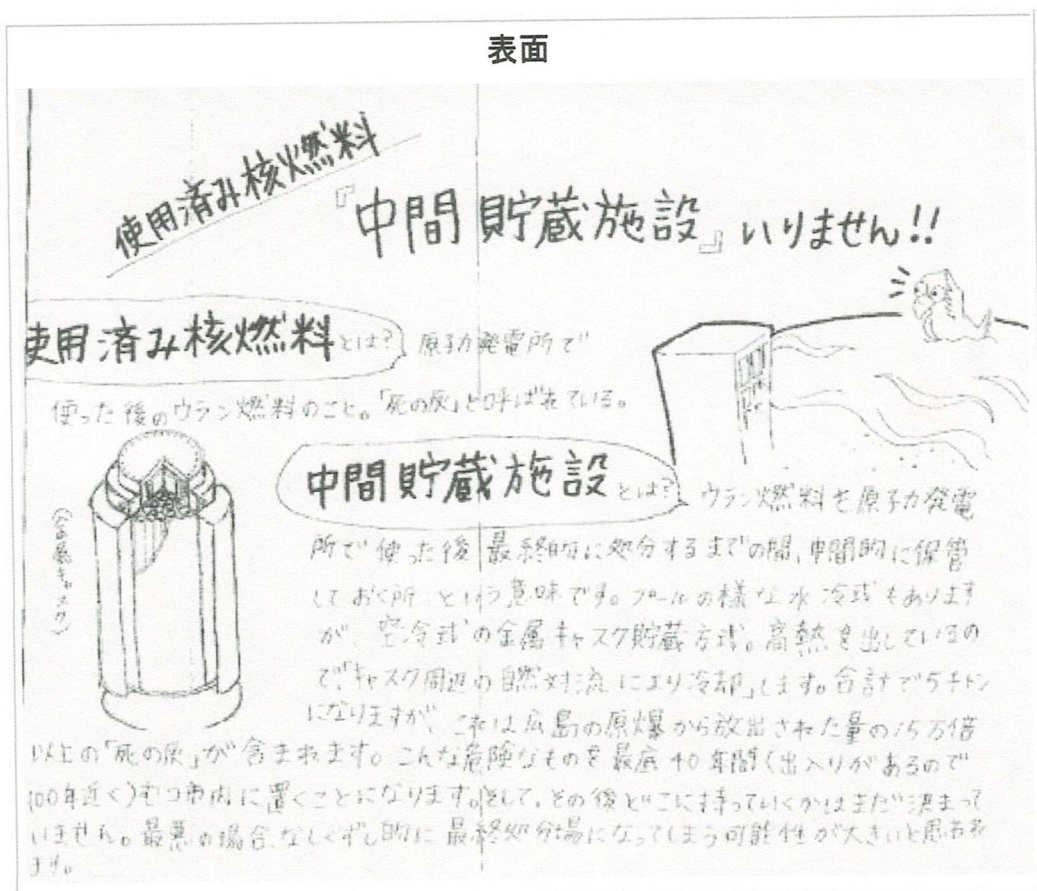 表面
使用済み核燃料
『中間貯蔵施設』いりません!!
使用済み核燃料とは? 原子力発電所で
使った後のウラン燃料のこと。「死の灰」と呼ばれている。
(金属キャスク)
中間貯蔵施設とは? ウラン燃料を原子力発電
所で使った後 最終的に処分するまでの間、中間的に保管
しておく所 という意味です。プールの様な水冷式もあります
が、空冷式の金属キャスク貯蔵方式。高熱を出しているの
で「キャスク周辺の自然対流により冷却」します。合計で5千トン
になりますが、これは広島の原爆から放出された量の15万倍
以上の「死の灰」が含まれます。こんな危険なものを最底40年間(出入りがあるので
100年近く)むつ市内に置くことになります。そして、その後どこに持っていくかはまだ決まって
いません。最悪の場合、なしくずし的に最終処分場になってしまう可能性が大きいと思われ
ます。